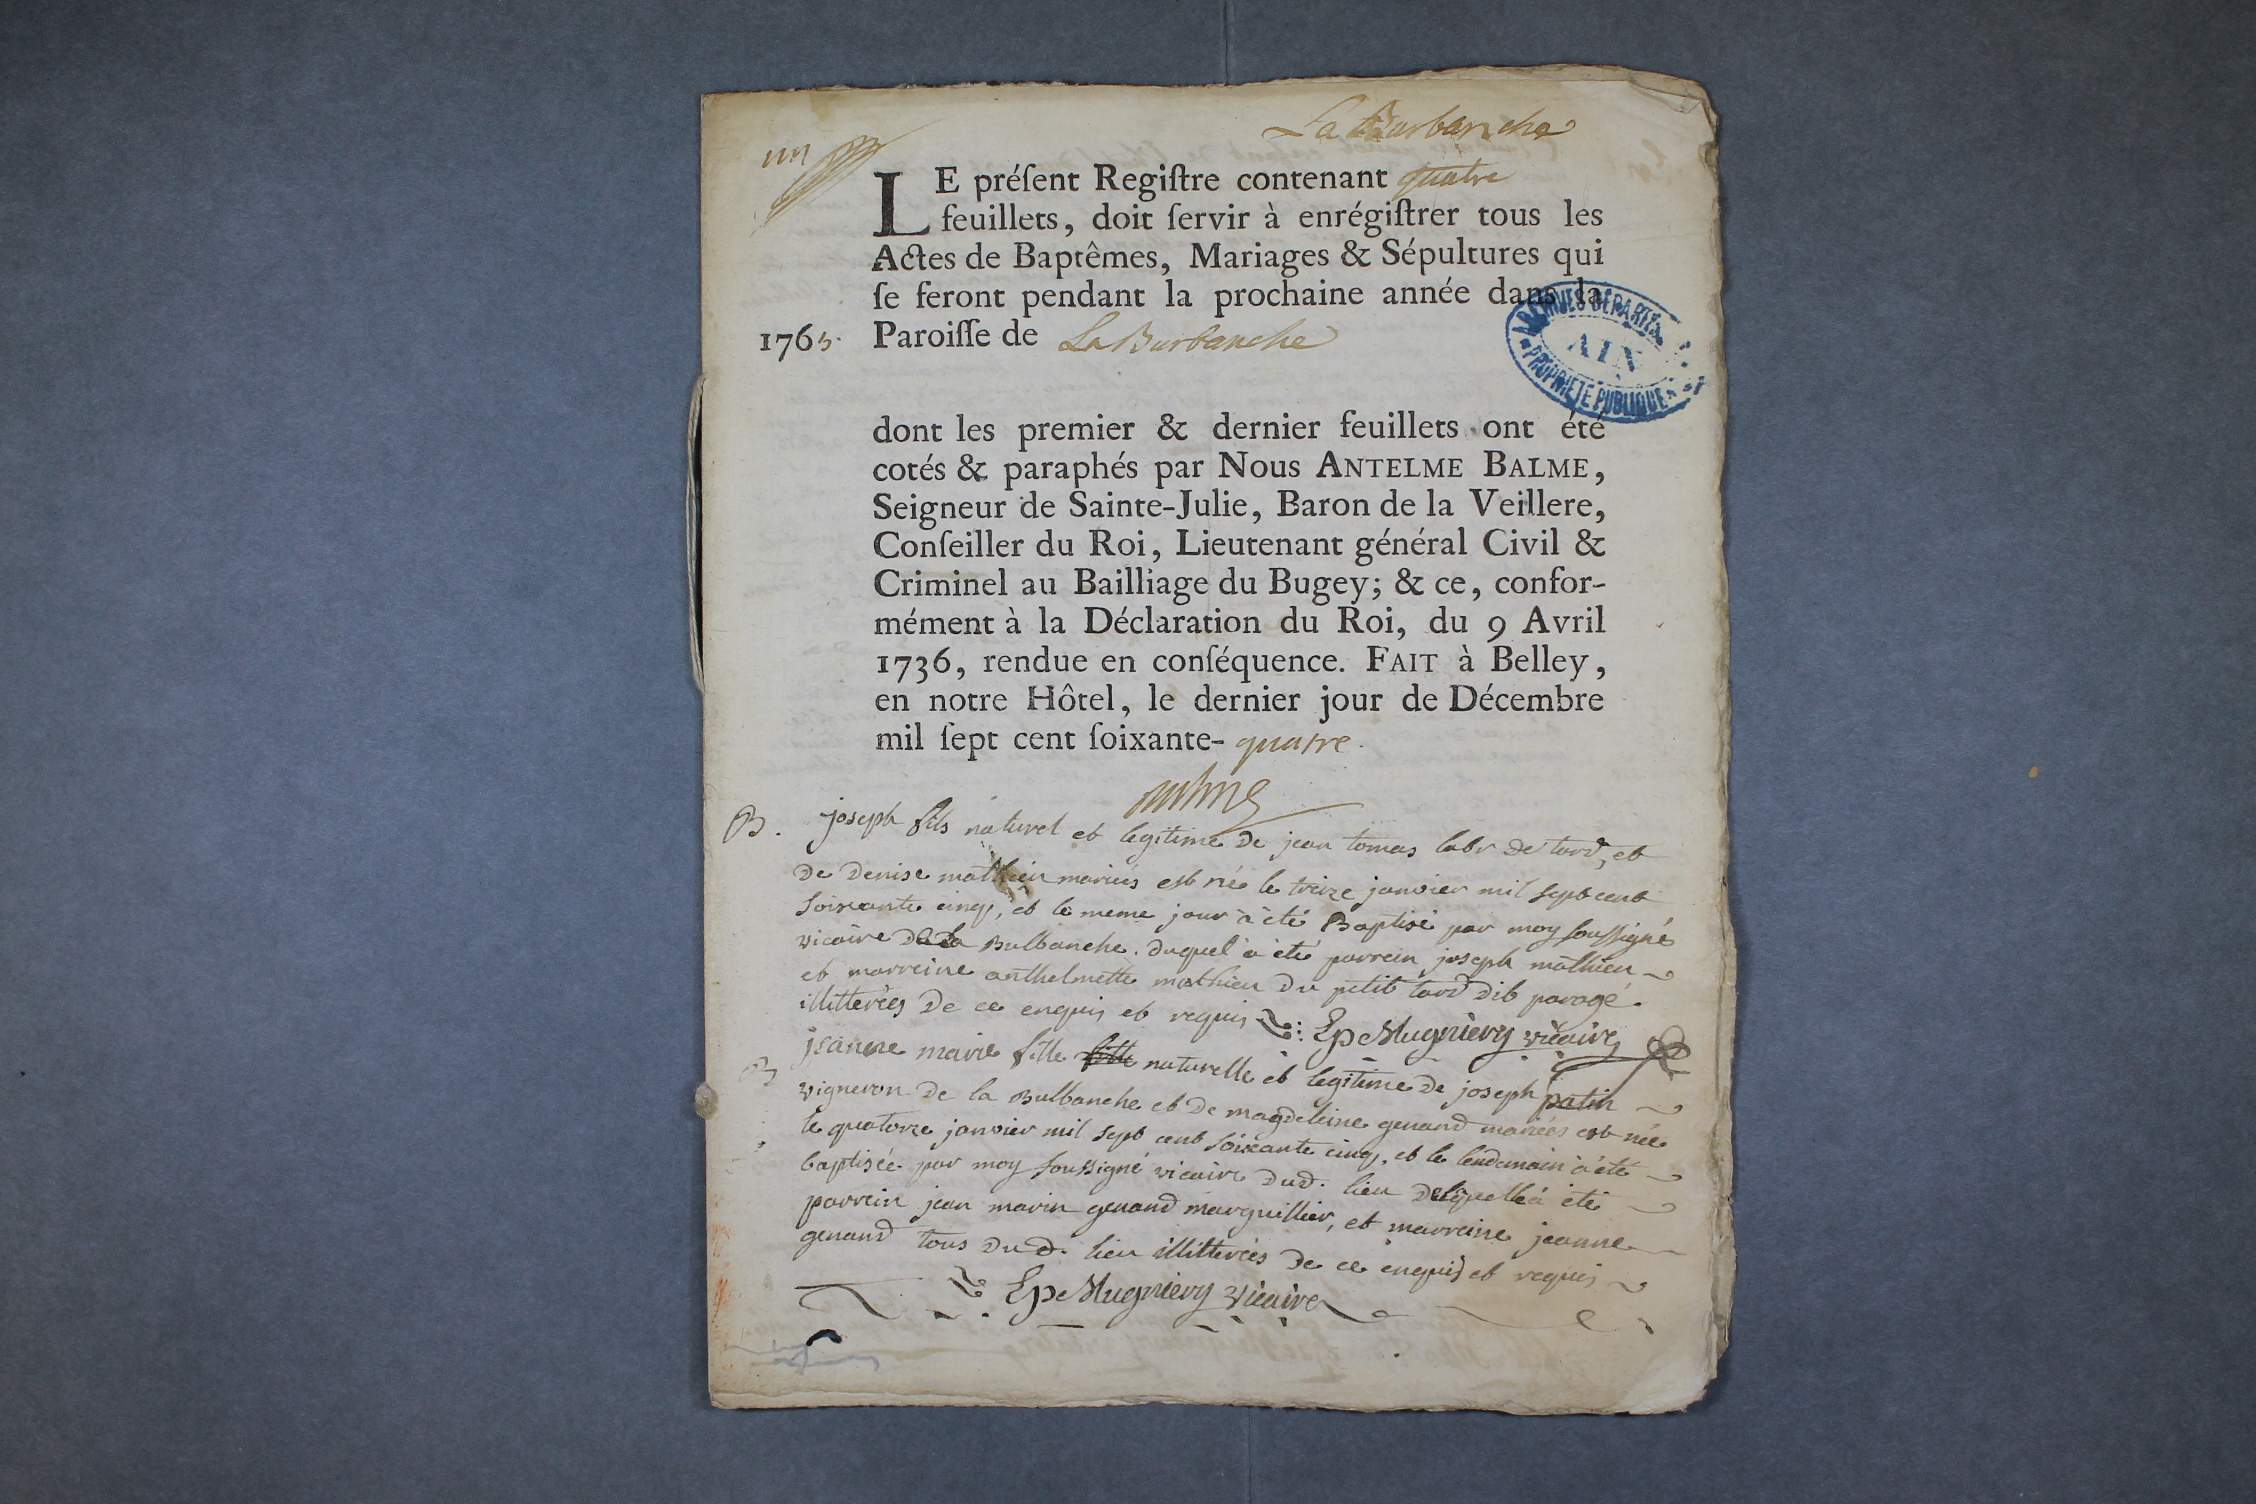 La Burbanche
un
LE préſent Regiſtre contenant quatre
feuillets, doit ſervir à enrégiſtrer tous les
Actes de Baptêmes, Mariages & Sépultures qui
ſe feront pendant la prochaine année dans la
1765. Paroiſſe de La Burbanche
ARCHIVES DÉPARTEM
AIN
PROPRIÉTÉ PUBLIQUE
dont les premier & dernier feuillets ont été
cotés & paraphés par Nous ANTELME BALME,
Seigneur de Sainte-Julie, Baron de la Veillere,
Conſeiller du Roi, Lieutenant général Civil &
Criminel au Bailliage du Bugey; & ce, confor-
mément à la Déclaration du Roi, du 9 Avril
1736, rendue en conſéquence. FAIT à Belley,
en notre Hôtel, le dernier jour de Décembre
mil ſept cent ſoixante-quatre.
B. joseph fils naturel et legitime de jean tomas labr de tard, et
de denise mathieu mariés est née le treize janvier mil sept cent
soixante cinq, et le meme jour à été Baptisé par moy soussigné
vicaire de la Bulbanche. duquel à été parrein joseph mathieu
et marreine anthelmette mathieu du petit tard dit paragé.
illitterées de ce enquis et requis Ep Mugniery vicaire
B jeanne marie fille fille naturelle et legitime de joseph patin
vigneron de la Bulbanche et de magdeleine genand mariés est née
le quatorze janvier mil sept cent soixante cinq, et le lendemain à été
baptisée par moy soussigné vicaire dud. lieu delaquelle à été
parrein jean marin genand marguillier, et marreine jeanne
genand tous dud. lieu illitterées de ce enquis et requis
Ep Mugniery vicaire